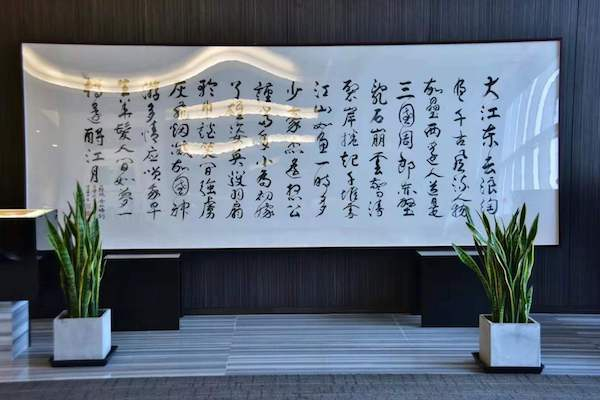 大江东去浪淘
尽千古风流人物
故垒西边人道是
三国周郎赤壁
乱石崩云惊涛
裂岸捲起千堆雪
江山如画一时多
少豪杰遥想公
瑾当年小乔初嫁
了雄姿英发羽扇
纶巾谈笑间强虏
灰飞烟灭故国神
游多情应笑我早
生华髪人间如梦一
樽还酹江月